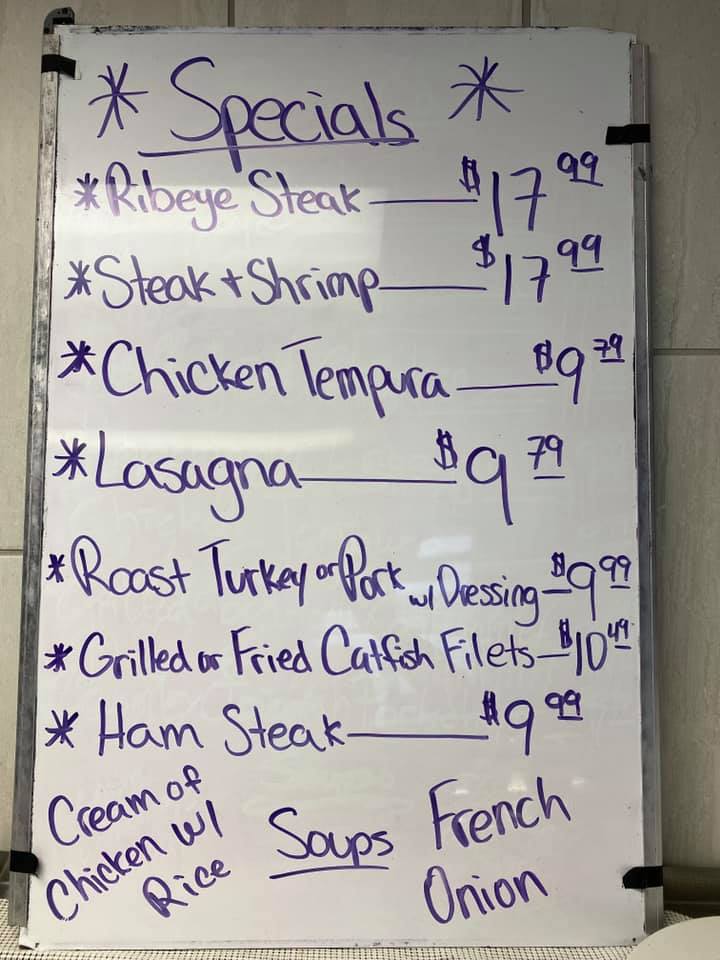 * Specials *
*Ribeye Steak — $17.99
*Steak + Shrimp — $17.99
*Chicken Tempura — $9.79
*Lasagna — $9.79
*Roast Turkey or Pork w/ Dressing — $9.99
*Grilled or Fried Catfish Filets — $10.49
*Ham Steak — $9.99
Cream of
Chicken w/
Rice
Soups
French
Onion